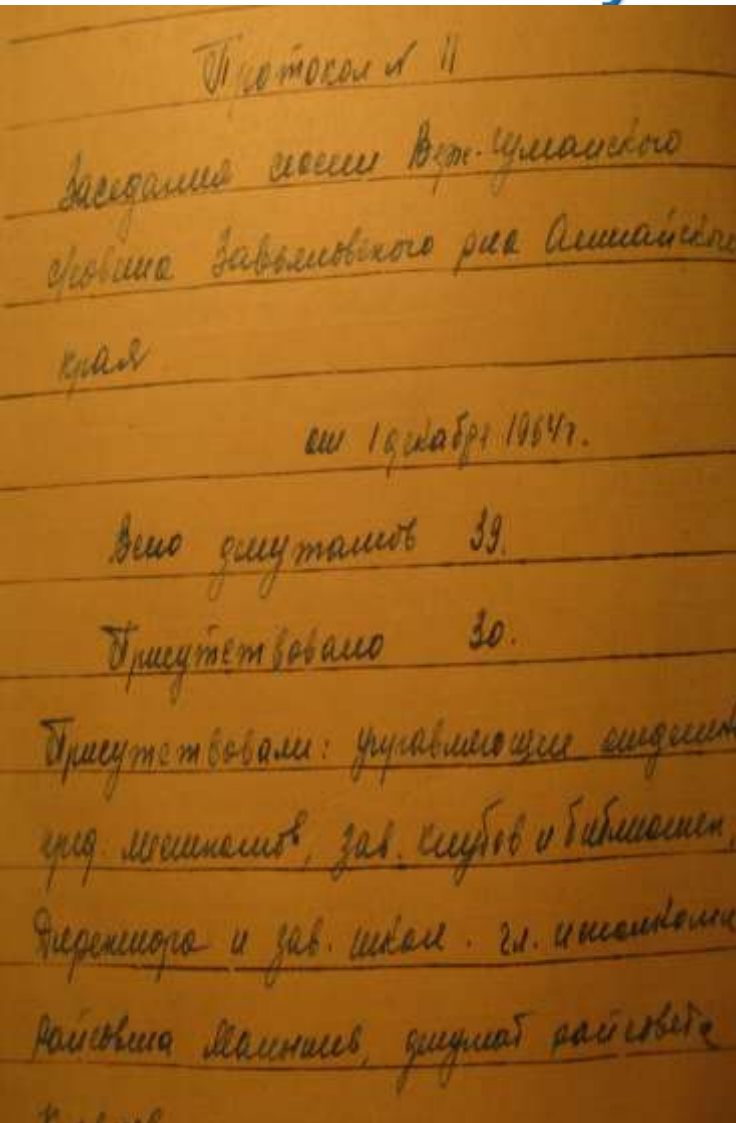 Протокол № 11
Заседания сессии Верх-Чуманского
с/совета Завьяловского р-на Алтайского
края
от 1 декабря 1964 г.
Всего депутатов 39.
Присутствовало 30.
Присутствовали: управляющие
пред. месткомов, зав. клубов и библиотек,
Директора и зав. школ. чл. исполкома
Райсовета депутат райсовета